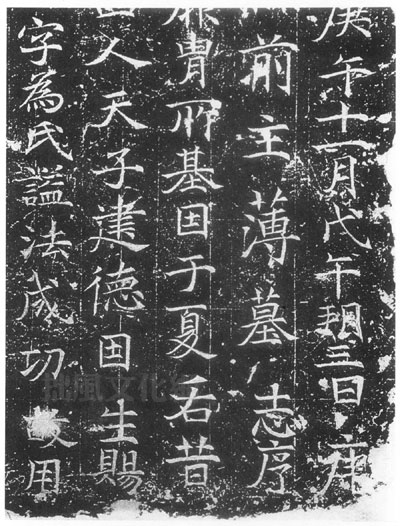 庚午十一月戊午朔三日庚
前主薄墓志序
胄所基因于夏后昔
人天子建德因生賜
字為氏謚法成功故用
拙風文化網